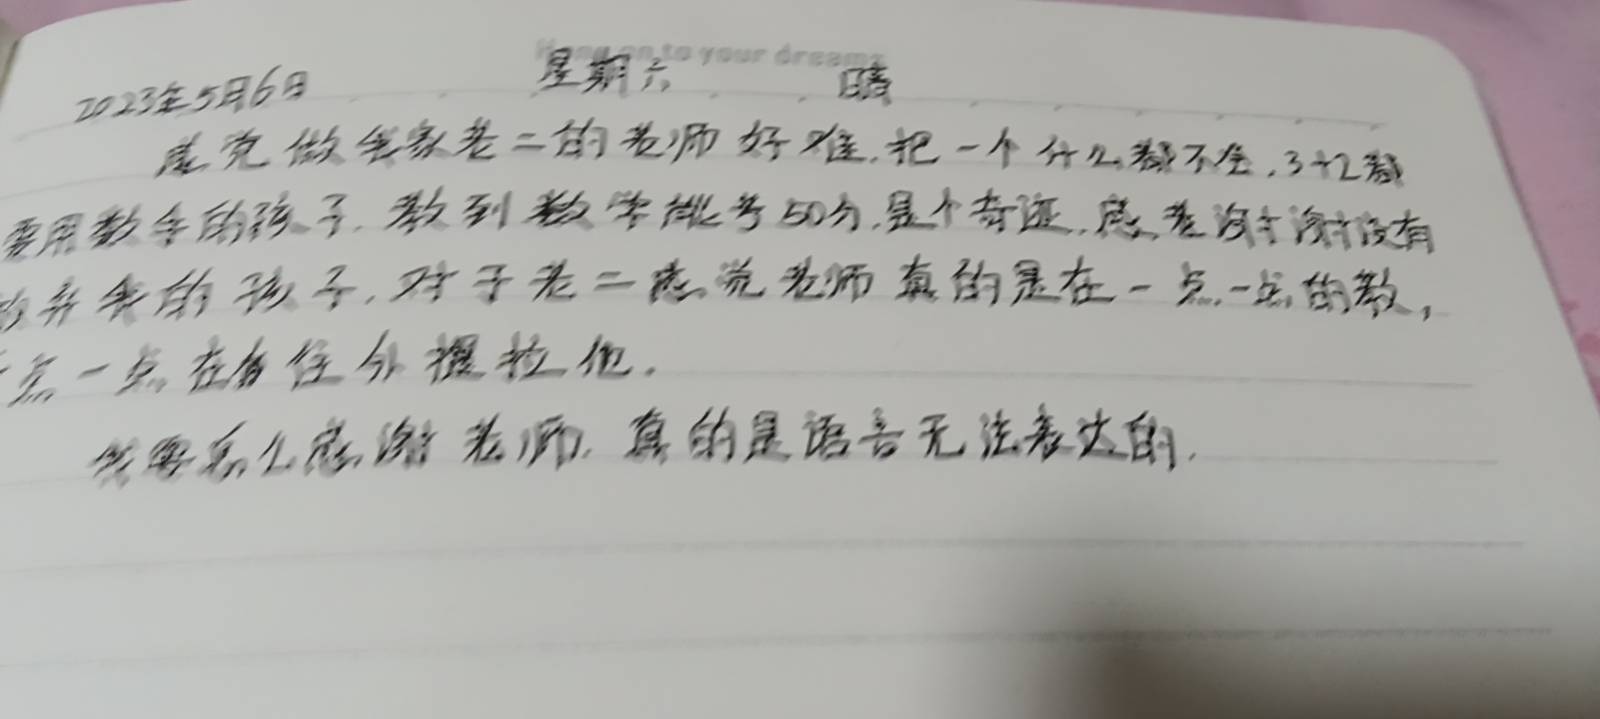 Hang on to your dreams
2023年5月6日 星期六 晴
感觉做我家老二的老师好难.把一个什么都不会.3+2都
要用数手的孩子.教到数学能考50分.是个奇迹.感 谢谢没有
放弃我的孩子.对于老二感觉老师真的是在一点一点的教,
一点一点在 往外 拉他.
我要怎么感谢老师.真的是语言无法表达的.